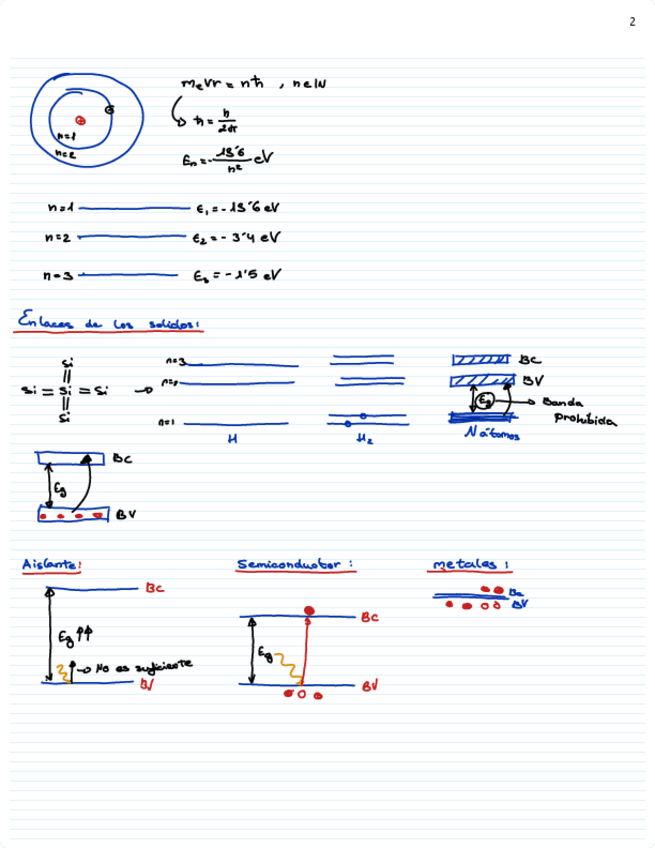 2
mₑvr = nħ , n∈ℕ
ħ = h/2π
n=1
n=2
Eₙ = -13'6/n² eV
n=1 E₁ = -13'6 eV
n=2 E₂ = -3'4 eV
n=3 E₃ = -1'5 eV
Enlaces de los solidos:
Si
Si = Si = Si
Si
n=3
n=2
n=1
H
H₂
BC
BV
Eg
Banda
Prohibida
N átomos
BC
Eg
BV
Aislante:
BC
Eg ↑↑
No es suficiente
BV
Semiconductor:
BC
Eg
BV
metales:
BC
BV